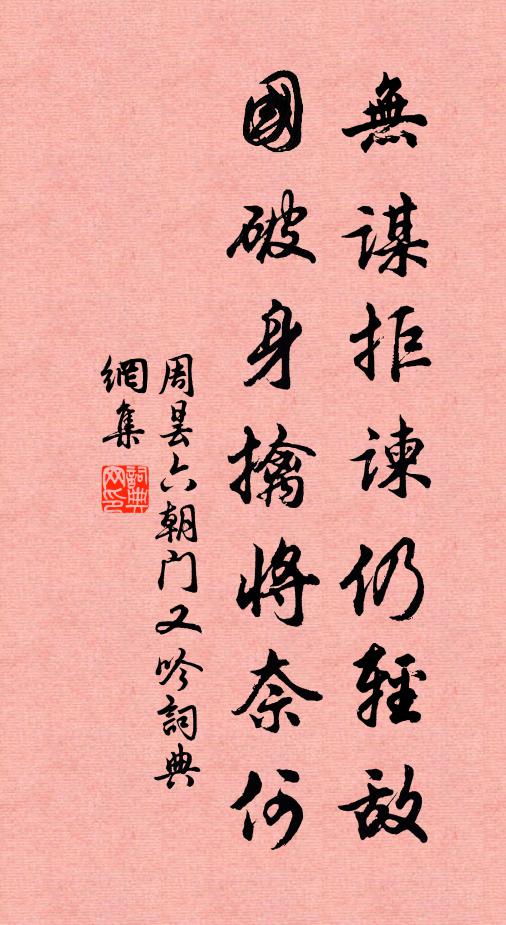 無謀拒諫仍輕敵
國破身擒將奈何
周曇六朝门又吟詞典
網集
詞典网印